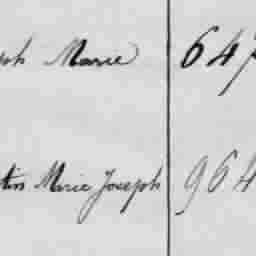 ph Marie 647
tin Marie Joseph 964